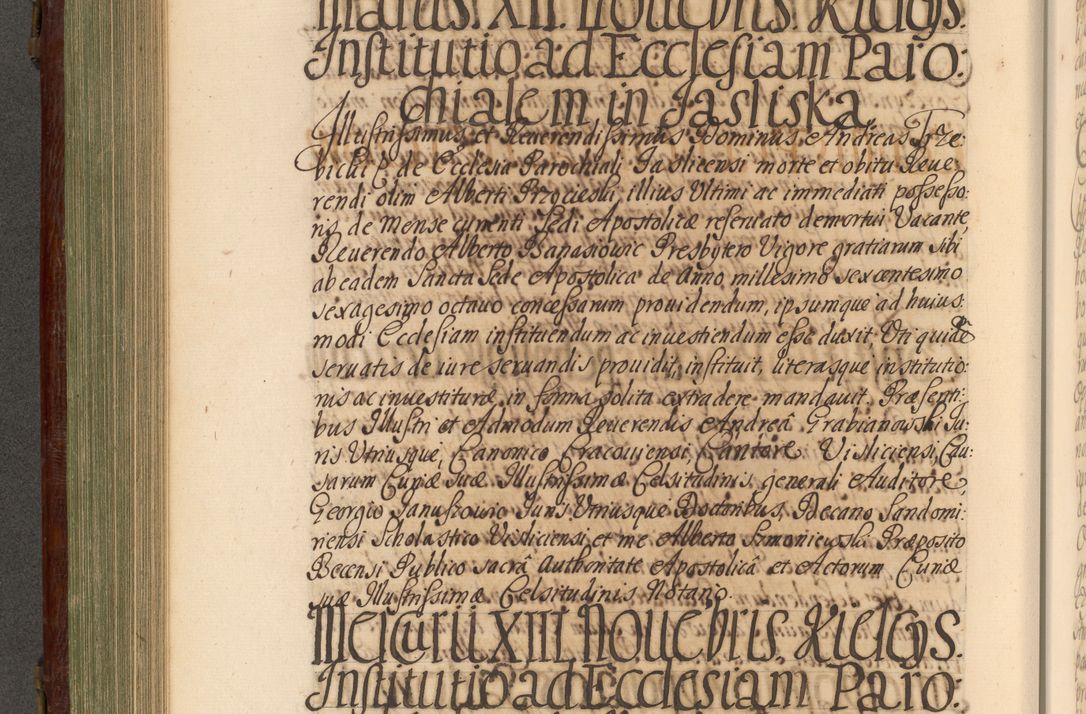 Martis. XII. Nouebris Kielcys.
Institutio ad Ecclesiam Paro:
chialem in Jasliska
Illustrissimus et Reuerendissimus Dominus Andreas Trze:
bicki E. de Ecclesia Parochiali Jaslicensi morte et obitu Reue:
rendi olim Alberti Przecieski, illius Ultimi ac immediati possesso:
ris de Mense currenti Sedi Apostolicæ reseruato demortui Vacante,
Reuerendo Alberto Banasiowic Presbytero Vigore gratiarum sibi
ab eadem Sancta Sede Apostolica de Anno millesimo sexcentesimo
sexagesimo octauo concessarum prouidendum, ipsumque ad huius:
modi Ecclesiam instituendum ac inuestiendum esse duxit, Uti quidē
seruatis de iure seruandis prouidit, instituit, literasque institutio:
nis ac inuestituræ in forma solita extradere mandauit. Præsenti:
bus Illustri et Admodum Reuerendis Andreâ Grabianowski Ju:
ris Utriusque, Canonico Cracouiensi Cantore Visliciensi, Cau:
sarum Curiæ suæ Illustrissimæ Celsitudinis generali Auditore,
Georgio Januszowic Juris Utriusque Doctoribus, Decano Sandomi:
riensi Scholastico Visliciensi, et me Alberto Szmoniewski Præposito
Beceнsi Publico sacrâ Authoritate Apostolicâ et Actorum Curiæ
suæ Illustrissimæ Celsitudinis Notario.
Mercurii XIII Nouebris. Kielcys.
Institutio ad Ecclesiam Paro: